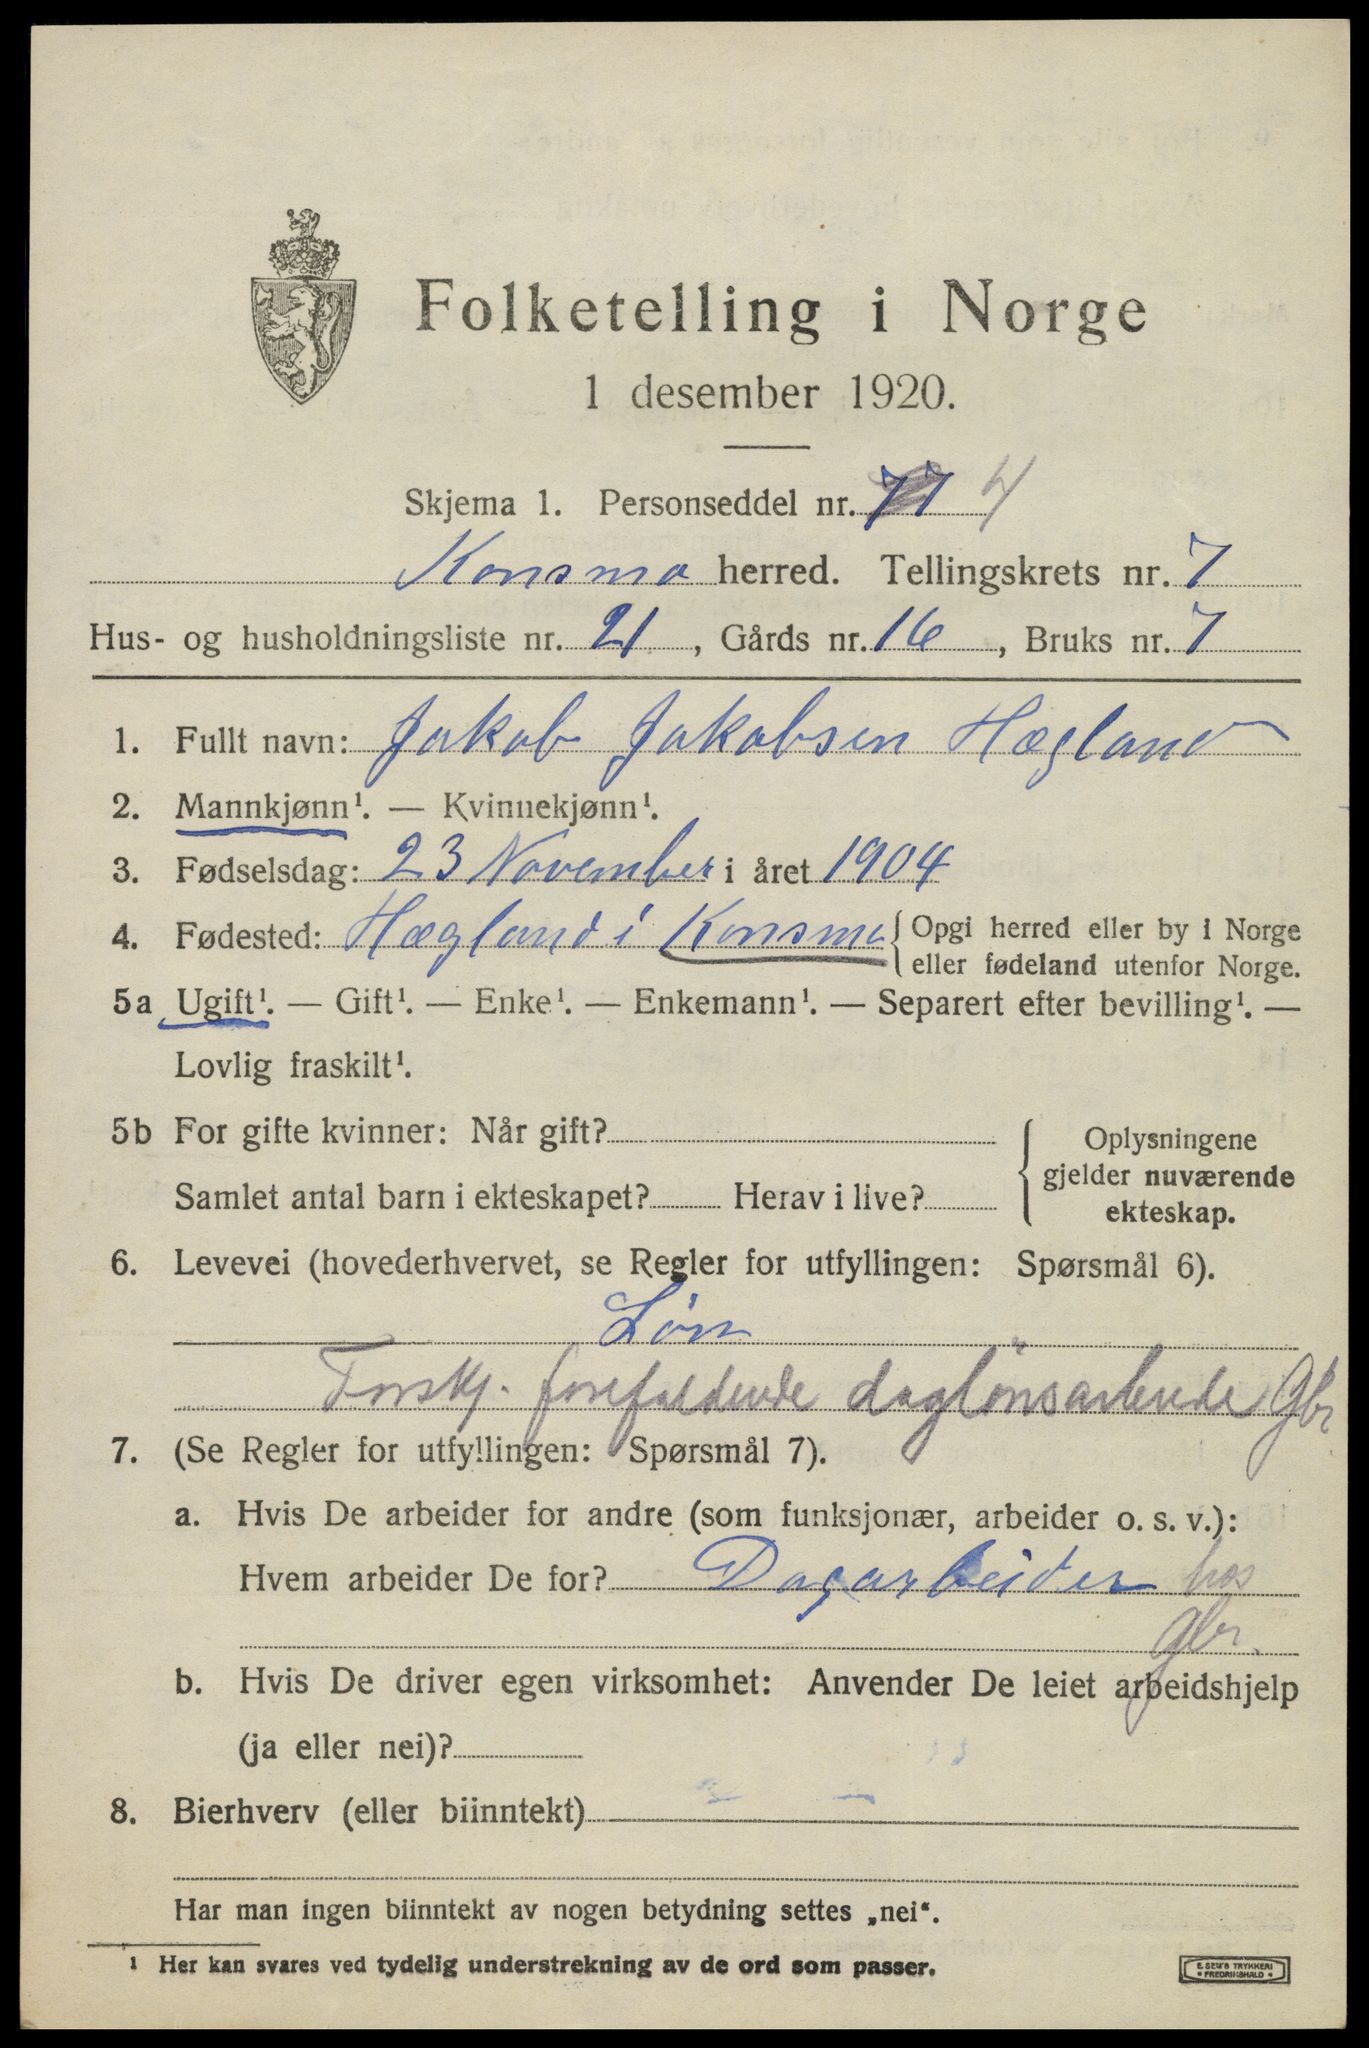 Folketelling i Norge
1 desember 1920.
Skjema 1. Personseddel nr. 77 4
Konsmo herred. Tellingskrets nr. 7
Hus- og husholdningsliste nr. 21, Gårds nr. 16, Bruks nr. 7
1. Fullt navn: Jakob Jakobsen Hægland
2. Mannkjønn¹. — Kvinnekjønn¹.
3. Fødselsdag: 23 November i året 1904
4. Fødested: Hægland i Konsmo { Opgi herred eller by i Norge
eller fødeland utenfor Norge.
5a Ugift¹. — Gift¹. — Enke¹. — Enkemann¹. — Separert efter bevilling¹. —
Lovlig fraskilt¹.
5b For gifte kvinner: Når gift?
Samlet antal barn i ekteskapet? Herav i live?
Oplysningene
gjelder nuværende
ekteskap.
6. Levevei (hovederhvervet, se Regler for utfyllingen: Spørsmål 6).
Løn
Forskj. forefaldende daglønsarbeide Gbr
7. (Se Regler for utfyllingen: Spørsmål 7).
a. Hvis De arbeider for andre (som funksjonær, arbeider o. s. v.):
Hvem arbeider De for? Dagarbeider hos
Gbr.
b. Hvis De driver egen virksomhet: Anvender De leiet arbeidshjelp
(ja eller nei)?
8. Bierhverv (eller biinntekt)
Har man ingen biinntekt av nogen betydning settes „nei“.
¹ Her kan svares ved tydelig understrekning av de ord som passer.
E. SEM'S TRYKKERI
• FREDRIKSHALD •